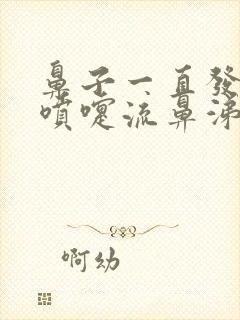 鼻子一直發
噴嚏流鼻涕
啊幼